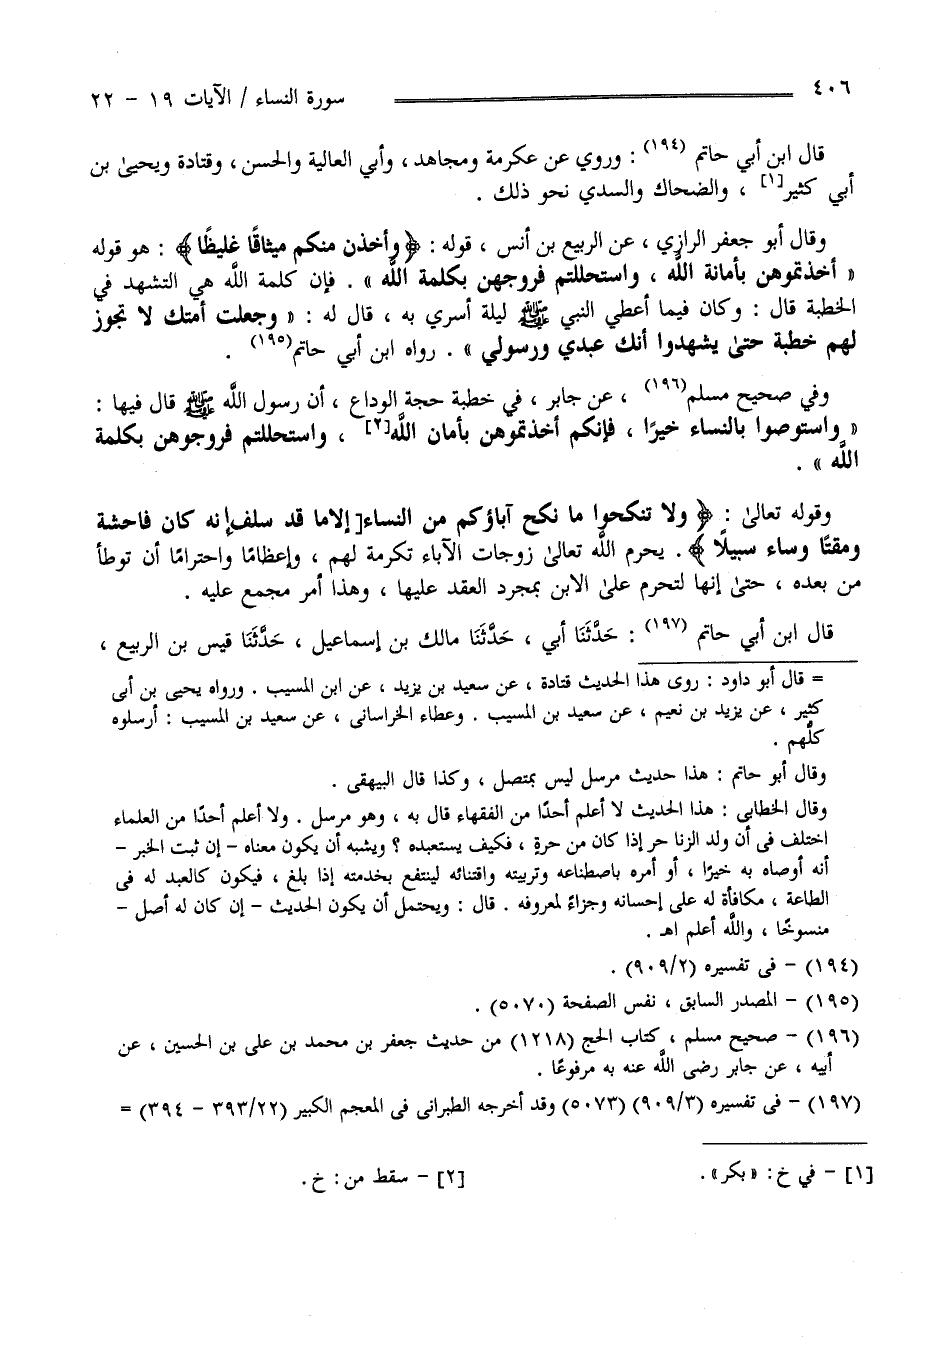 ٤٠٦ سورة النساء / الآيات ١٩ - ٢٢
قال ابن أبي حاتم (١٩٤) : وروي عن عكرمة ومجاهد ، وأبي العالية والحسن ، وقتادة ويحيىٰ بن
أبي كثير[١] ، والضحاك والسدي نحو ذلك .
وقال أبو جعفر الرازي ، عن الربيع بن أنس ، قوله : ﴿وأخذن منكم ميثاقًا غليظًا﴾ : هو قوله
« أخذتموهن بأمانة اللَّه ، واستحللتم فروجهن بكلمة اللَّه » . فإن كلمة اللَّه هي التشهد في
الخطبة قال : وكان فيما أعطي النبي ﷺ ليلة أسري به ، قال له : « وجعلت أمتك لا تجوز
لهم خطبة حتىٰ يشهدوا أنك عبدي ورسولي » . رواه ابن أبي حاتم(١٩٥) .
وفي صحيح مسلم(١٩٦) ، عن جابر ، في خطبة حجة الوداع ، أن رسول اللَّه ﷺ قال فيها :
« واستوصوا بالنساء خيرًا ، فإنكم أخذتموهن بأمان اللَّه[٢] ، واستحللتم فروجوهن بكلمة
اللَّه » .
وقوله تعالىٰ : ﴿ ولا تنكحوا ما نكح آباؤكم من النساء[إلاما قد سلف]إنه كان فاحشة
ومقتًا وساء سبيلًا ﴾ . يحرم اللَّه تعالىٰ زوجات الآباء تكرمة لهم ، وإعظامًا واحترامًا أن توطأ
من بعده ، حتىٰ إنها لتحرم علىٰ الابن بمجرد العقد عليها ، وهذا أمر مجمع عليه .
قال ابن أبي حاتم (١٩٧) : حَدَّثَنَا أبي ، حَدَّثَنَا مالك بن إسماعيل ، حَدَّثَنَا قيس بن الربيع ،
= قال أبو داود : روى هذا الحديث قتادة ، عن سعيد بن يزيد ، عن ابن المسيب . ورواه يحيى بن أبى
كثير ، عن يزيد بن نعيم ، عن سعيد بن المسيب . وعطاء الخراسانى ، عن سعيد بن المسيب : أرسلوه
كلُّهم .
وقال أبو حاتم : هذا حديث مرسل ليس بمتصل ، وكذا قال البيهقى .
وقال الخطابى : هذا الحديث لا أعلم أحدًا من الفقهاء قال به ، وهو مرسل . ولا أعلم أحدًا من العلماء
اختلف فى أن ولد الزنا حر إذا كان من حرةٍ ، فكيف يستعبده ؟ ويشبه أن يكون معناه - إن ثبت الخبر -
أنه أوصاه به خيرًا ، أو أمره باصطناعه وتربيته واقتنائه لينتفع بخدمته إذا بلغ ، فيكون كالعبد له فى
الطاعة ، مكافأة له على إحسانه وجزاءً لمعروفه . قال : ويحتمل أن يكون الحديث - إن كان له أصل -
منسوخًا ، واللَّه أعلم اهـ .
(١٩٤) - فى تفسيره (٩٠٩/٢) .
(١٩٥) - المصدر السابق ، نفس الصفحة (٥٠٧٠) .
(١٩٦) - صحيح مسلم ، كتاب الحج (١٢١٨) من حديث جعفر بن محمد بن على بن الحسين ، عن
أبيه ، عن جابر رضى اللَّه عنه به مرفوعًا .
(١٩٧) - فى تفسيره (٩٠٩/٣) (٥٠٧٣) وقد أخرجه الطبرانى فى المعجم الكبير (٣٩٣/٢٢ - ٣٩٤) =
[١] - في خ: «بكر». [٢] - سقط من: خ.